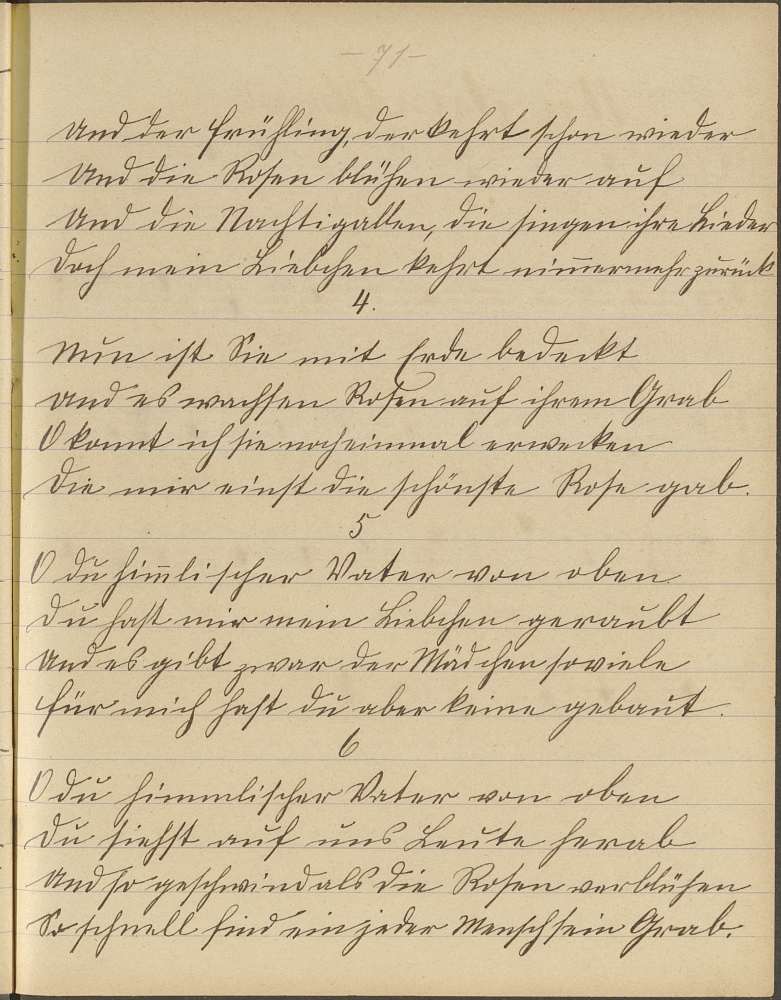 - 71 -
Und der Frühling, der kehrt schon wieder
Und die Rosen blühen wieder auf
Und die Nachtigallen, die singen ihre Lieder
Doch mein Liebchen kehrt nim̅ermehr zurück
4.
Nun ist Sie mit Erde bedeckt
Und es wachsen Rosen auf ihrem Grab
O konnt ich sie nocheinmal erwecken
Die mir einst die schönste Rose gab.
5
O du him̅lischer Vater von oben
Du hast mir mein Liebchen geraubt
Und es gibt zwar der Mädchen soviele
Für mich hast du aber keine gebaut.
6
O du himmlischer Vater von oben
Du siehst auf uns Leute herab
Und so geschwind als die Rosen verblühen
So schnell find ein jeder Mensch sein Grab.